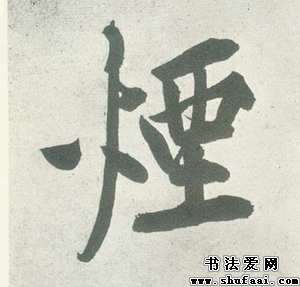 煙
书法爱网
www.shufaai.com